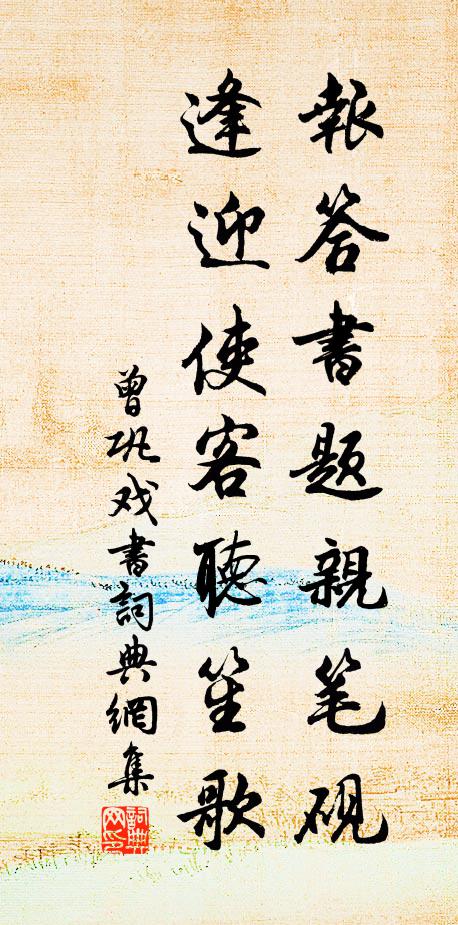 報答書題親笔硯
逢迎使客聽笙歌
曾巩戏書詞典網集
詞典网印